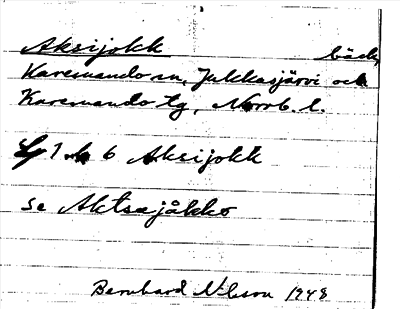 Aksijokk bäck,
Karesuando sn, Jukkasjärvi och
Karesuando tg, Norrb. l.
1 6 Aksijokk
se Aktsejåkko
Bernhard Nilsson 1948